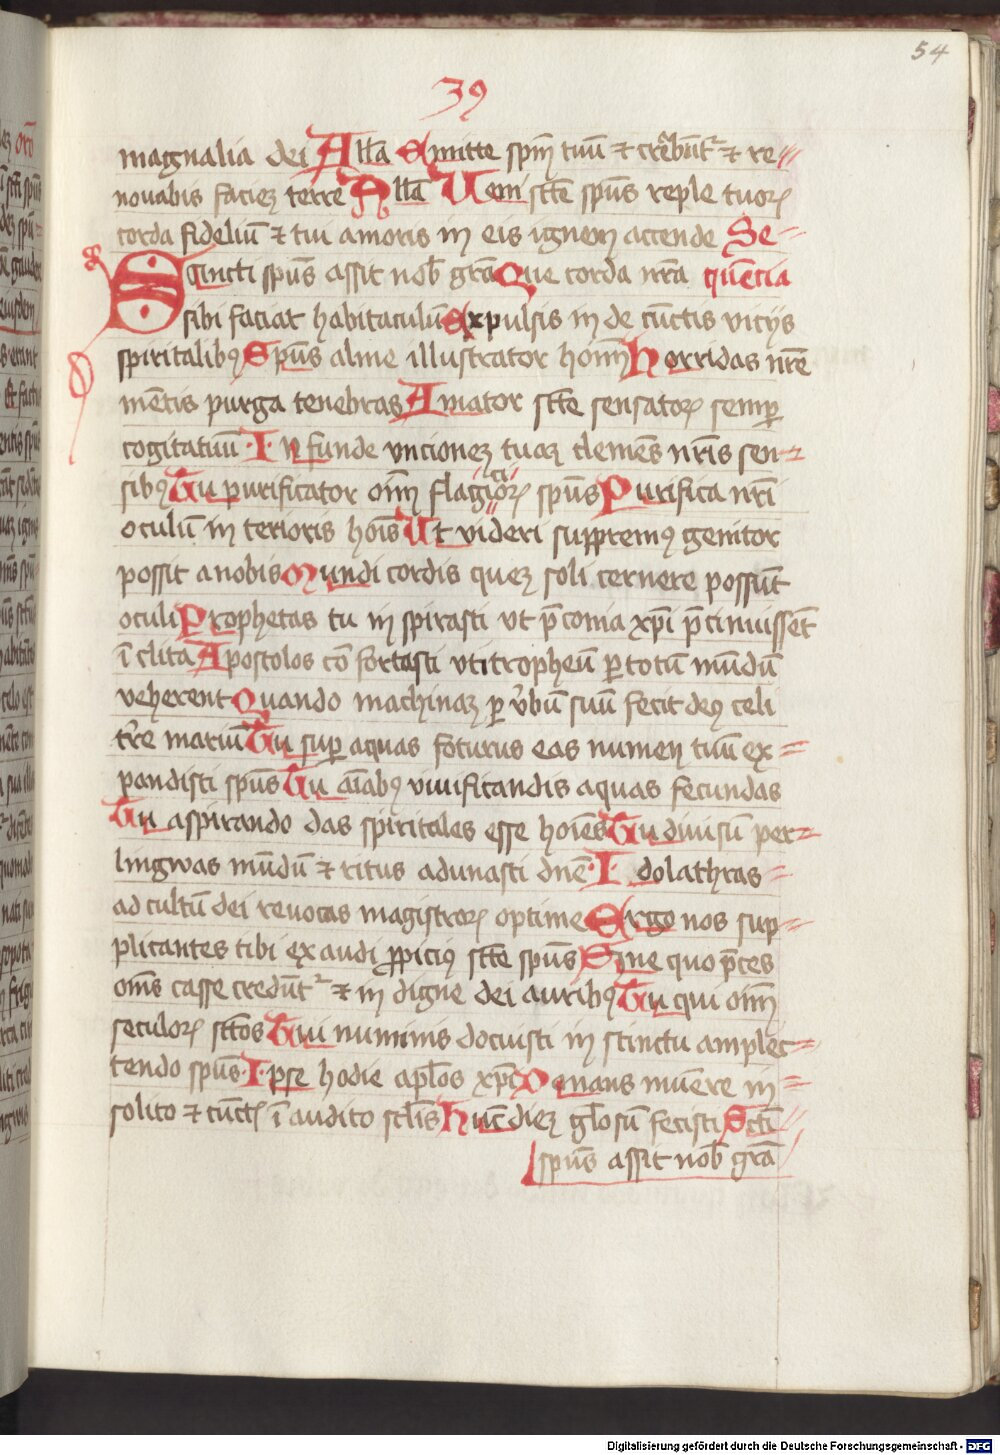 54
39
magnalia dei Alła Emitte spm̄ tuū ⁊ creabūt᷑ ⁊ re⸗
novabis faciez terre Alła Veni sc̄te spūs reple tuoꝝ
corda fideliū ⁊ tui amoris in eis ignem accende Se⸗
Sancti spūs assit nob̄ grā Que corda nrā quēcia
sibi faciat habitaculū Expulsis in de cūctis vicijs
spiritalibꝰ Spūs alme illustrator hoīm Horridas nrē
mētis purga tenebras Amator sc̄te sensatoꝝ semꝑ
cogitatuū In funde vncionez tuaz clemēs nrīs sen⸗
sibꝰ Tu purificator oīm flagicioꝝ spūs Purifica nrī
oculū in terioris hoīs Ut videri suppremꝰ genitor
possit a nobis Mundi cordis quez soli cernere possūt
oculi Prophetas tu in spirasti vt p̄conia xp̄i p̄cinuissēt
ī clita Apostolos cō fortasti vti tropheū ꝑ totū mūdū
veherent Quando machinaz ꝑ v̓bū suū fecit deꝰ celi
tr̄re mariū Tu suꝑ aquas foturus eas numen tuū ex⸗
pandisti spūs Tu aīabꝰ viuificandis aquas fecundas
Tu aspirando das spiritales esse hoīes Tu diuisū per⸗
lingwas mūdū ⁊ ritus adunasti dn̄e Idolathras⸗
ad cultū dei revocas magistroꝝ optime Ergo nos sup⸗
plicantes tibi ex audi ꝓpiciꝰ sc̄te spūs Sine quo p̄ces
om̄s casse credūt᷑ ⁊ in digne dei auribꝰ Tu qui oīm
seculoꝝ sc̄tos Tui numinis docuisti in stinctu amplec⸗
tendo spūs Ipse hodie apl̄os xp̄i Donans mūere in⸗
solito ⁊ cūctꝭ ī audito scl̄is Hūc diez gl̄osū fecisti Sc̄ti
spūs assit nob̄ grā
Digitalisierung gefördert durch die Deutsche Forschungsgemeinschaft - DFG